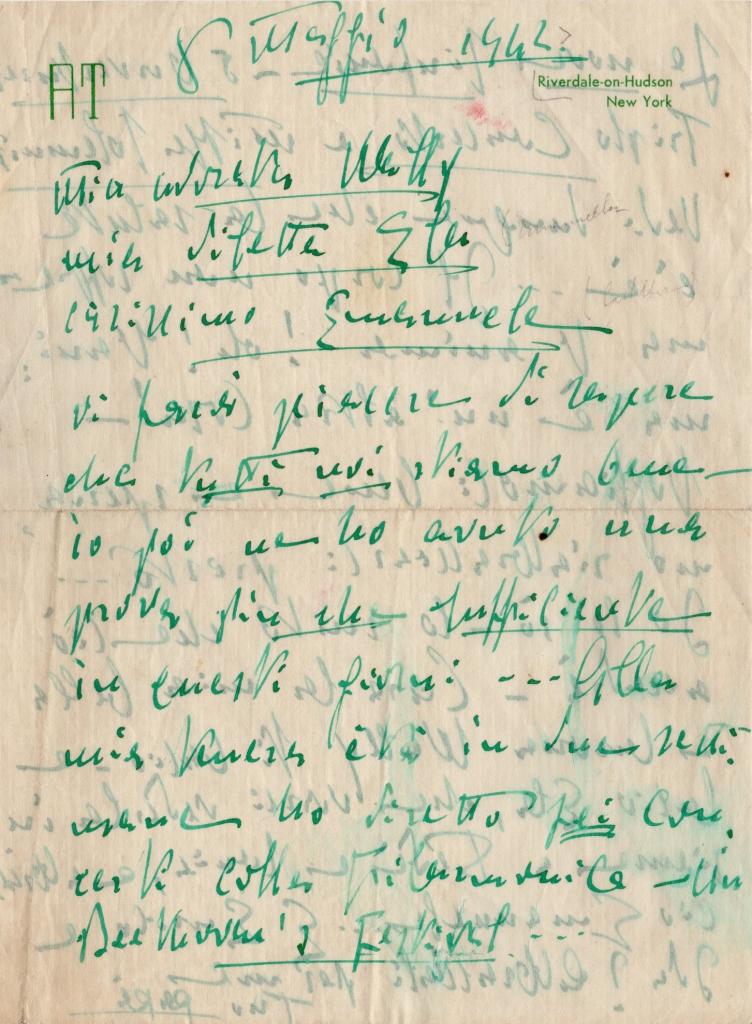 8 Maggio 1942
AT
Riverdale-on-Hudson
New York
Mia adorata Wally
mia diletta Elsa
carissimo Emanuele
vi farà piacere di sapere
che tutti noi stiamo bene —
io poi ne ho avuto una
prova più che sufficiente
in questi giorni --- Alla
mia tenera età in due setti
mane ho diretto sei con
certi colla Filarmonica — Un
Beethoven's Festival ---